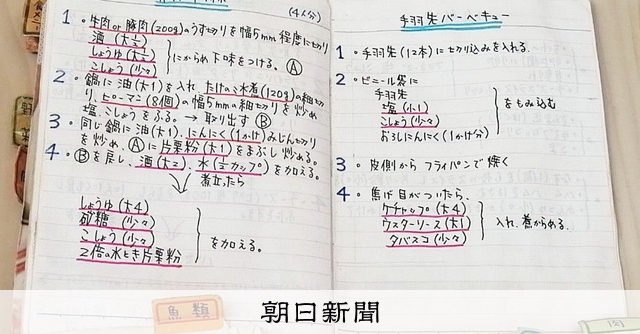 (4人分)
1. 牛肉or豚肉(200g)のうす切りを幅5mm程度に切り
酒(大½)
しょうゆ(大½)
こしょう(少々)
にからめ下味をつける。Ⓐ
2. 鍋に油(大1)を入れ、たけのこ水煮(120g)の細切
り、ピーマン(8個)の幅5mmの細切りを炒め
塩、こしょうをふる。→取り出すⒷ
3. 同じ鍋に油(大1)、にんにく(1かけ)みじん切り
を炒め、Ⓐに片栗粉(大1)をまぶし炒める。
4. Ⓑを戻し、酒(大2)、水(½カップ)を加える。
煮立ったら
しょうゆ(大4)
砂糖(少々)
こしょう(少々)
2倍の水とき片栗粉
を加える。
手羽先バーベキュー
1. 手羽先(12本)に切り込みを入れる.
2. ビニール袋に
手羽先
塩(小1)
こしょう(少々)
おろしにんにく(1かけ分)
をもみ込む
3. 皮側から フライパンで焼く
4. 焦げ目がついたら、
ケチャップ(大4)
ウスターソース(大1)
タバスコ(少々)
入れ、煮からめる.
魚類
肉
朝日新聞